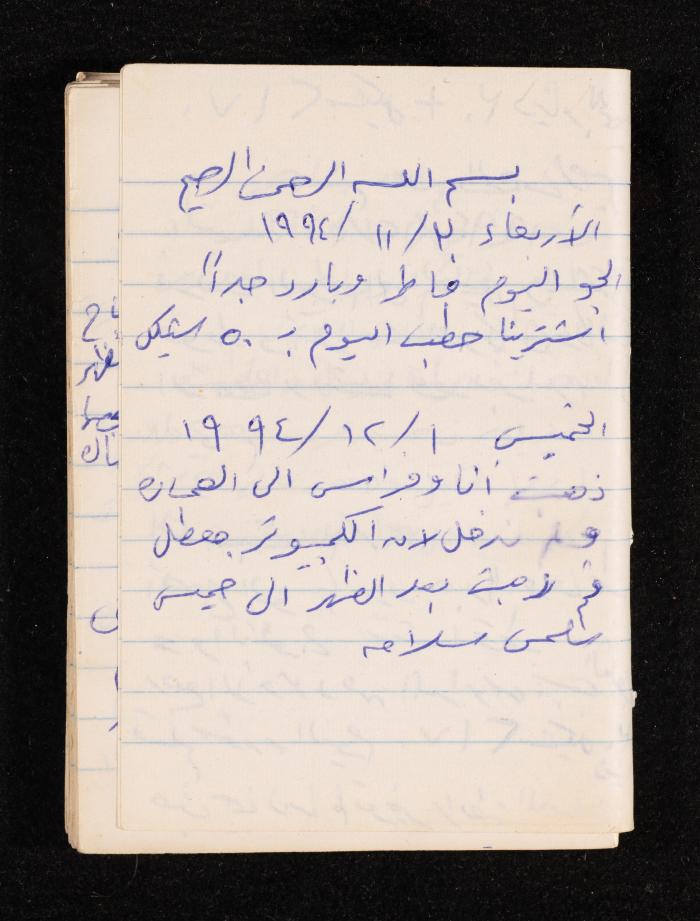 بسم الله الرحمن الرحيم
الأربعاء ٣٠/١١/١٩٩٤
الجو اليوم ماطر وبارد جداً
اشترينا حطب اليوم بـ ٥٠ شيكل
الخميس ١/١٢/١٩٩٤
ذهبت أنا وفراس الى العماره
ولم ندخل لان الكمبيوتر معطل
ثم ذهبت بعد الظهر الى خميس
سلامه